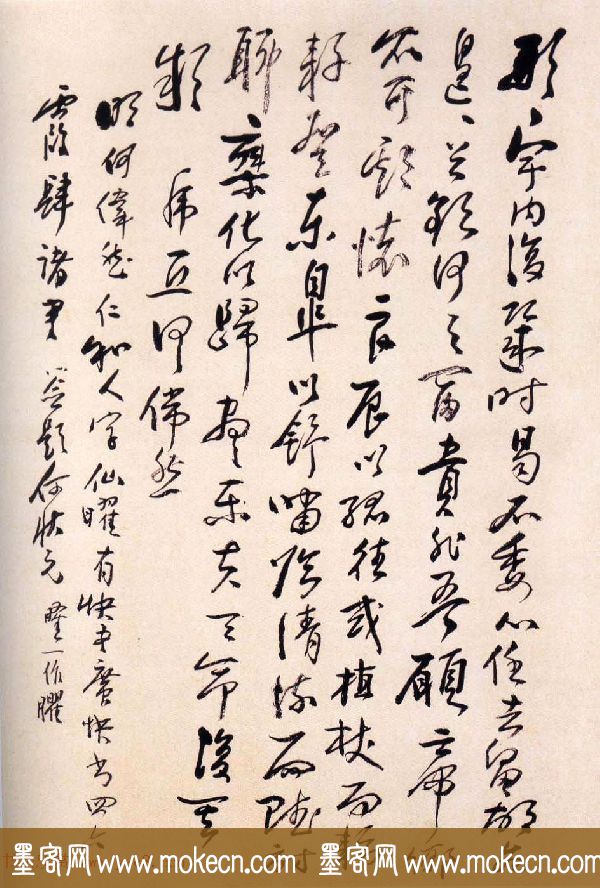 形宇内復幾時曷不委心任去留胡
遑遑兮欲何之富貴非吾願帝鄉
不可期懷良辰以孤往或植杖而耘
耔登東皋以舒嘯臨清流而賦詩
聊乘化以歸盡樂夫天命復奚
疑
明何偉然仁和人字仙臞有快書廣快書四六
霞肆諸書 一作臞
墨客网 www.mokecn.com 墨客网 www.mokecn.com